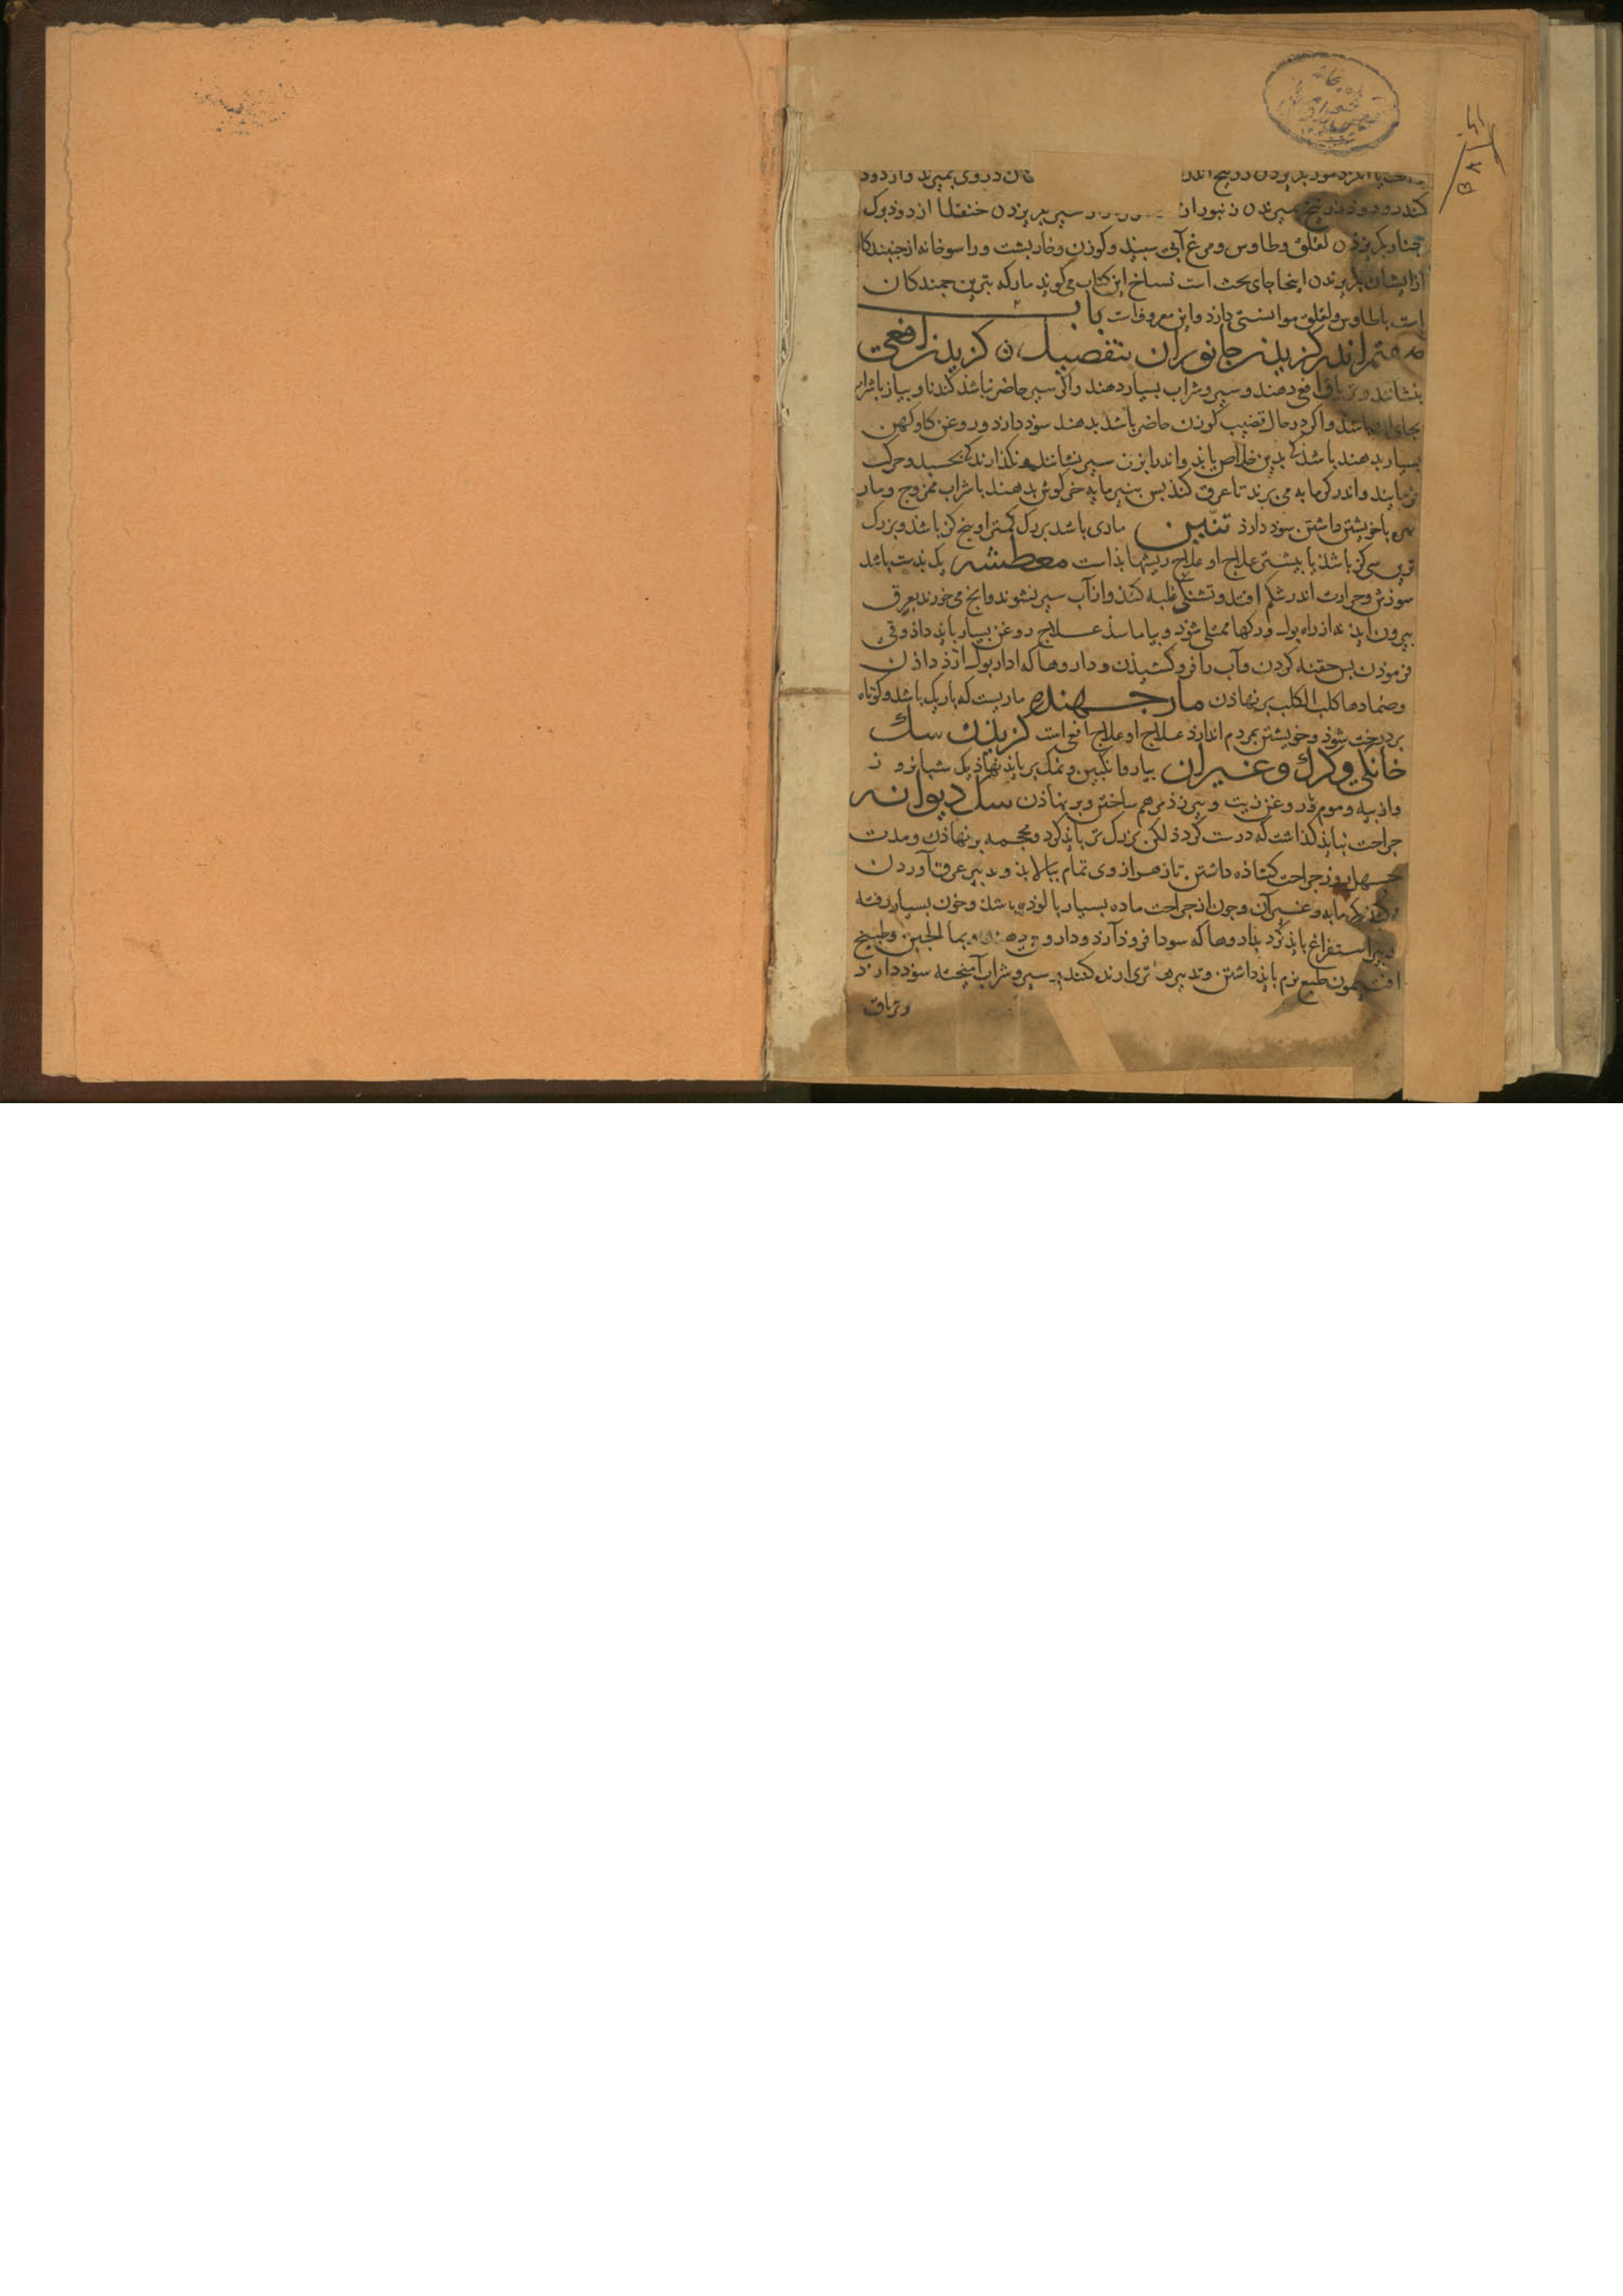 کندرو دود زرنیخ بمیرند ن زنبور از سیر بگریزد ن خنفسا از دود برک
چنار بگریزد ن لقلق و طاوس و مرغ آبی سبید و کوزن و خاربشت و راسو خانه از جنبندکا
ازایشان بگریزند ن اینجا جای بحث است نساخ این کتاب می کوید مار که بترین جمندکان
است با طاوس و لقلق موانستی دارد و این معروفست باب
هفتم اندر کزیدن جانوران بتفصیل ن کزیدن افعی
بنشانند و تریاق افعی دهند و سیر و شراب بسیار دهند و اکر سیر حاضر نباشد کندنا و بیاز با شراب
بجای ان باشد و اکر در حال قضیب کوزن حاضر باشد بدهند سود دارد و روغن کاو کهن
بسیار بدهند باشد کا بدین خلاص یابد و اندر ابزن سیر نشانند و نکذارند کا بخسبد و حرکت
فرمایند و اندر کرمابه می برند تا عرق کند بس بنیرمایه خرکوش بدهند با شراب ممزوج و مار
مهره با خویشتن داشتن سود دارد تنین ماری باشد بزرک کمتر او بنج کز باشد و بزرک
ترین سی کز باشد یا بیشتر علاج او علاج ریشهاء بد است معطشه یک بدست باشد
سوزش و حرارت اندر شکم افتد و تشنکی غلبه کند و از آب سیر نشوند و انج می خورند بعرق
بیرون اید نه از راه بول و رکها ممتلی شود و بیاماسد علاج روغن بسیار باید داد و قی
فرمودن بس حقنه کردن و آب را فرو کشیدن و داروها که ادار بول ارد دادن
و ضمادها کلب الکلب بر نهادن مار جهنده ماریست که باریک باشد و کوتاه
بر درخت شود و خویشتن بمردم اندازد علاج او علاج افعی است کزیدن سک
خانکی و کرک و غیر ان بیاز و انکبین و نمک بر باید نهاد یک شبانروز
و از بیه و موم و روغن زیت و بیرزد مرهم ساختن و بر نهادن سک دیوانه
جراحت نباید کذاشت که درست کردد لکن بزرک تر باید کرد و محجمه بر نهادن و مدت
جهل روز جراحت کشاده داشتن تا زهر از وی تمام ببالاید و تدبیر عرق آوردن
کنند بکرمابه و غیر آن و جون از جراحت ماده بسیار بالوده باشد و خون بسیار رفته
دیر استفراغ باید کرد بداروها که سودا فرود آرد و داروح دهند و بما الجبن و طبیخ
افتیمون طبع نرم باید داشتن و تدبیرهاء تری ارنده کنند سیر و شراب آمیخته سود دارد
و تریاق